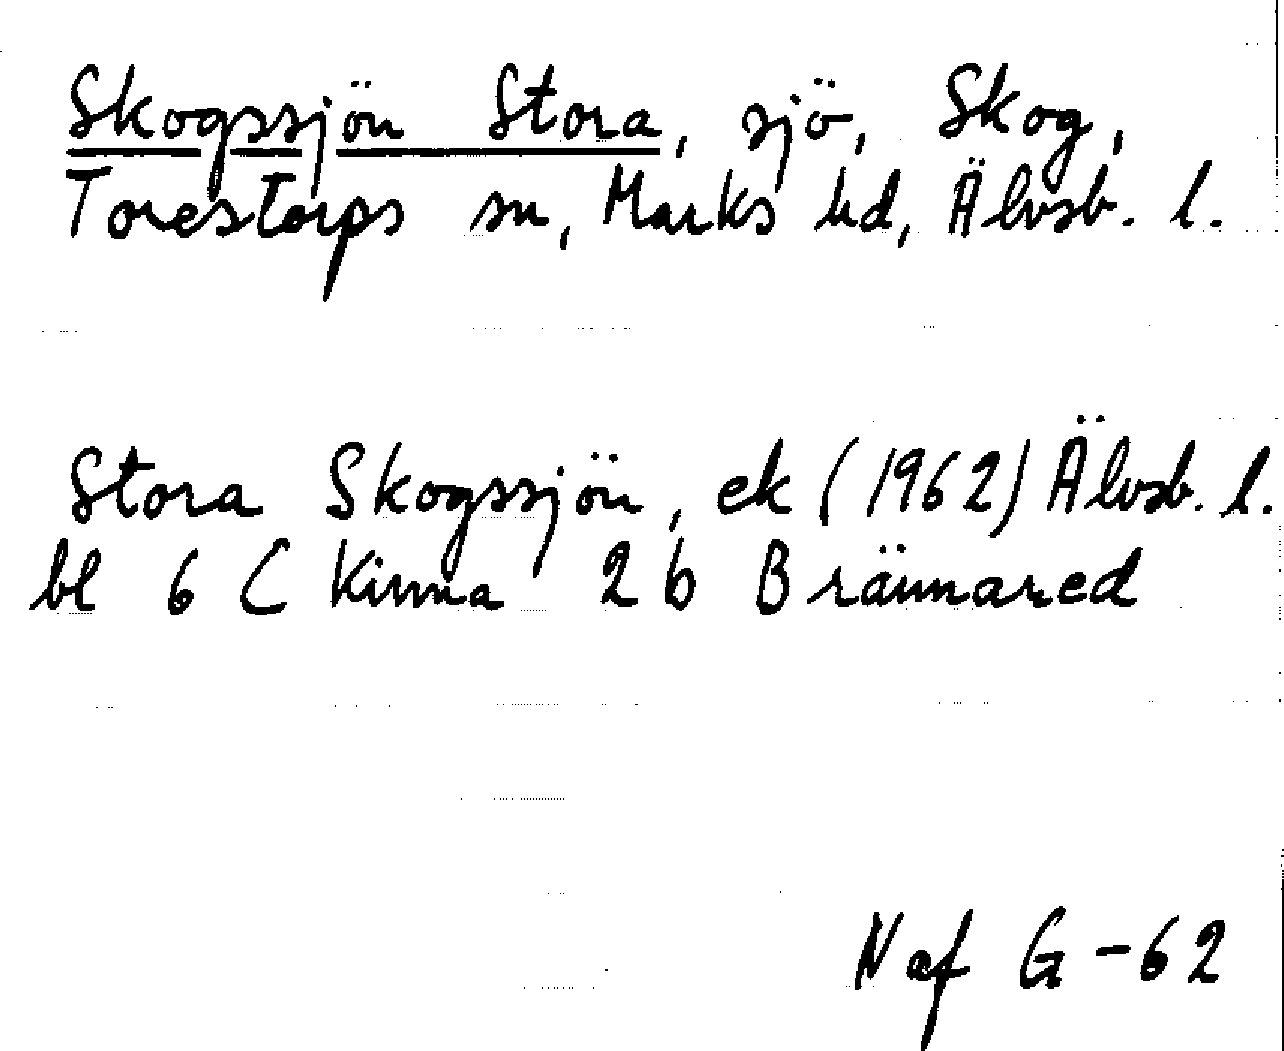 Skogssjön Stora, sjö, Skog,
Torestorps sn, Marks hd, Älvsb. l.
Stora Skogssjön, ek (1962) Älvsb. l.
bl 6 C Kinna 2 b Brännared
Naf G-62